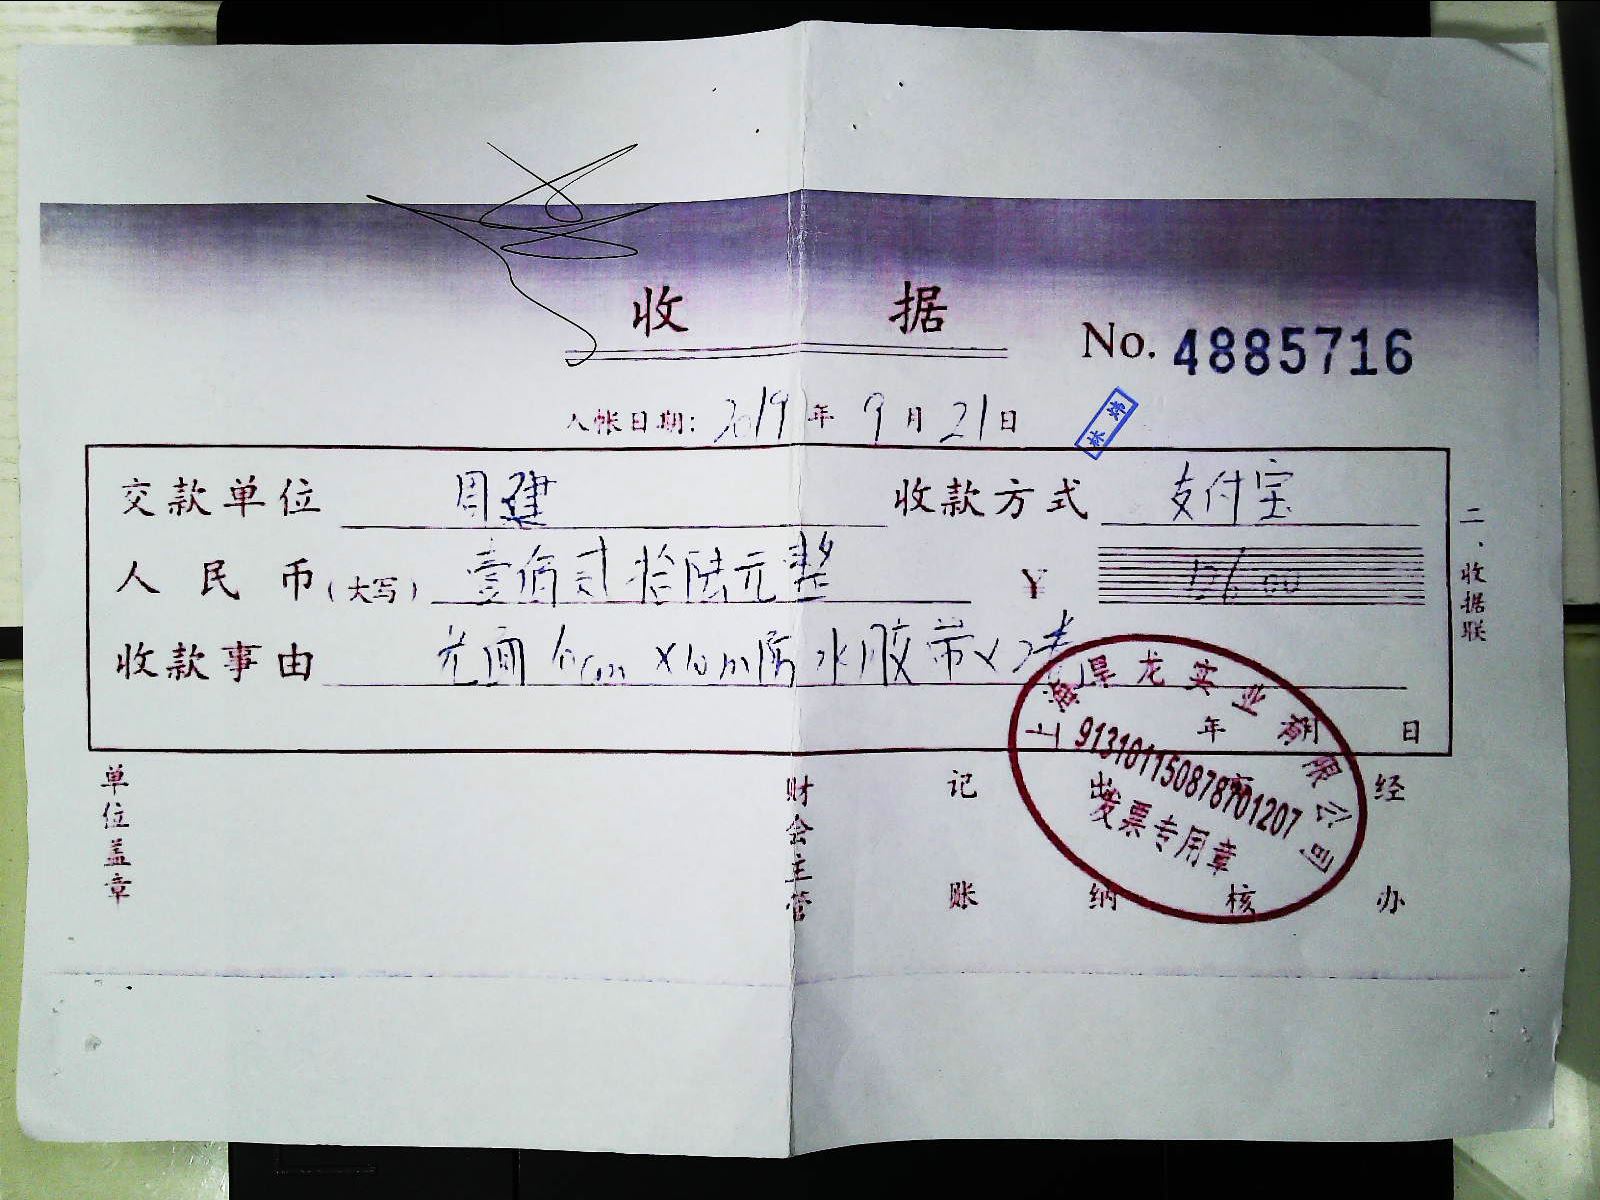 收 据
No. 4885716
入帐日期: 2019 年 9 月 21 日
交款单位 周建 收款方式 支付宝
人民币(大写) 壹佰贰拾陆元整 ¥ 126.00
收款事由 光面 10m防水胶带×2
年 月 日
二、收据联
上海旱龙实业有限公司
913101150878701207
发票专用章
单位盖章 财会主管 记账 出纳 审核 经办